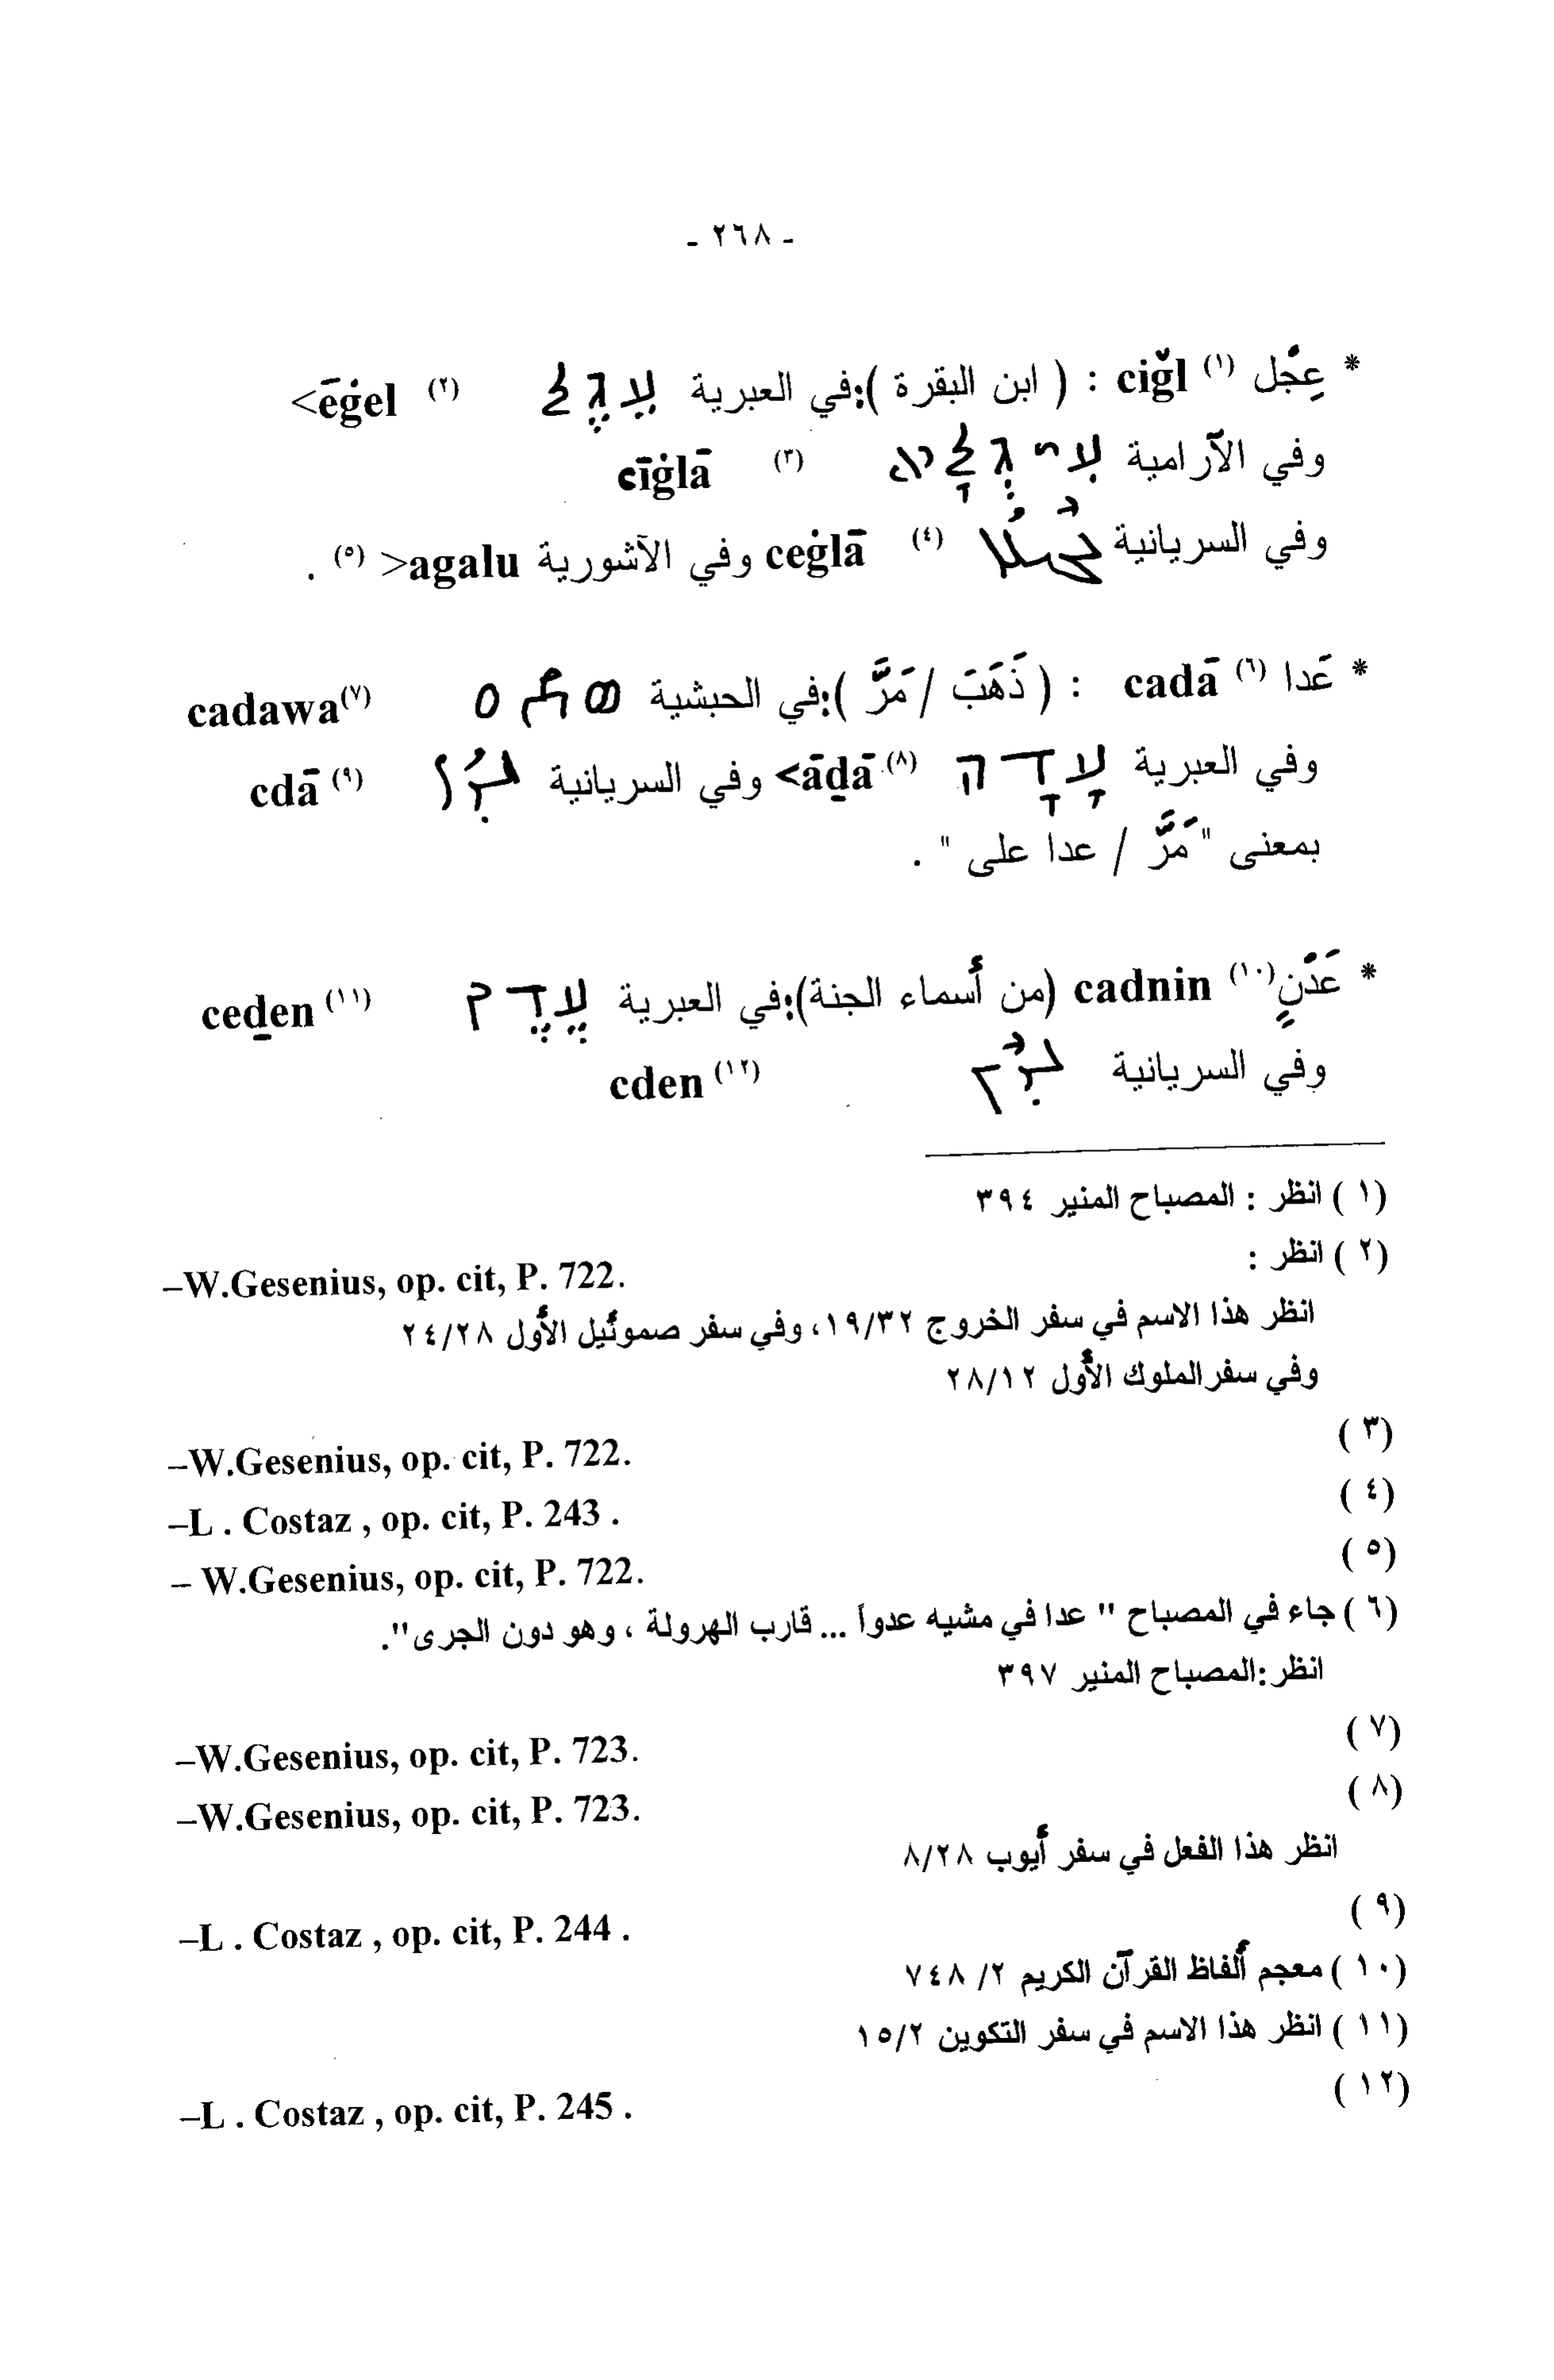 - ٢٦٨ -
* عِجْل (١) ciğl : ( ابن البقرة ):في العبرية עֵגֶל (٢) <ēġel
وفي الآرامية עִיגְלָא (٣) cīġlā
وفي السريانية ܥܓܠܐ (٤) ceġlā وفي الآشورية agalu< (٥) .
* عَدا (٦) cadā : ( ذَهَبَ / مَرَّ ):في الحبشية ዐደወ cadawa(٧)
وفي العبرية עָדָה (٨) <āḏā وفي السريانية ܥܕܐ (٩) cdā
بمعنى "مَرَّ / عدا على " .
* عَدْنٍ(١٠) cadnin (من أسماء الجنة):في العبرية עֶדֶן ceḏen (١١)
وفي السريانية ܥܕܢ cden (١٢)
(١) انظر : المصباح المنير ٣٩٤
(٢) انظر :
–W.Gesenius, op. cit, P. 722.
انظر هذا الاسم في سفر الخروج ١٩/٣٢، وفي سفر صموئيل الأول ٢٤/٢٨
وفي سفرالملوك الأول ٢٨/١٢
(٣)
–W.Gesenius, op. cit, P. 722.
(٤)
–L . Costaz , op. cit, P. 243 .
(٥)
– W.Gesenius, op. cit, P. 722.
(٦) جاء في المصباح " عدا في مشيه عدواً ... قارب الهرولة ، وهو دون الجرى".
انظر:المصباح المنير ٣٩٧
(٧)
–W.Gesenius, op. cit, P. 723.
(٨)
–W.Gesenius, op. cit, P. 723.
انظر هذا الفعل في سفر أيوب ٨/٢٨
(٩)
–L . Costaz , op. cit, P. 244 .
(١٠) معجم ألفاظ القرآن الكريم ٢/ ٧٤٨
(١١) انظر هذا الاسم في سفر التكوين ١٥/٢
(١٢)
–L . Costaz , op. cit, P. 245 .